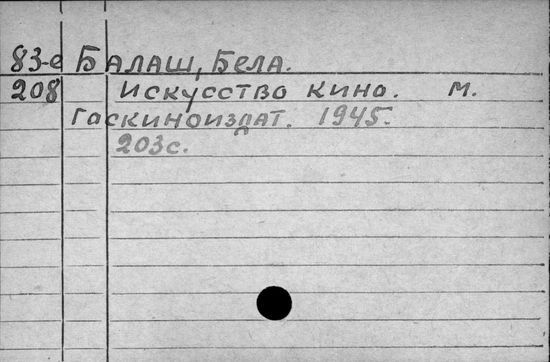 83-е Балаш, Бела.
208 Искусство кино. М.
Госкиноиздат. 1945.
203с.